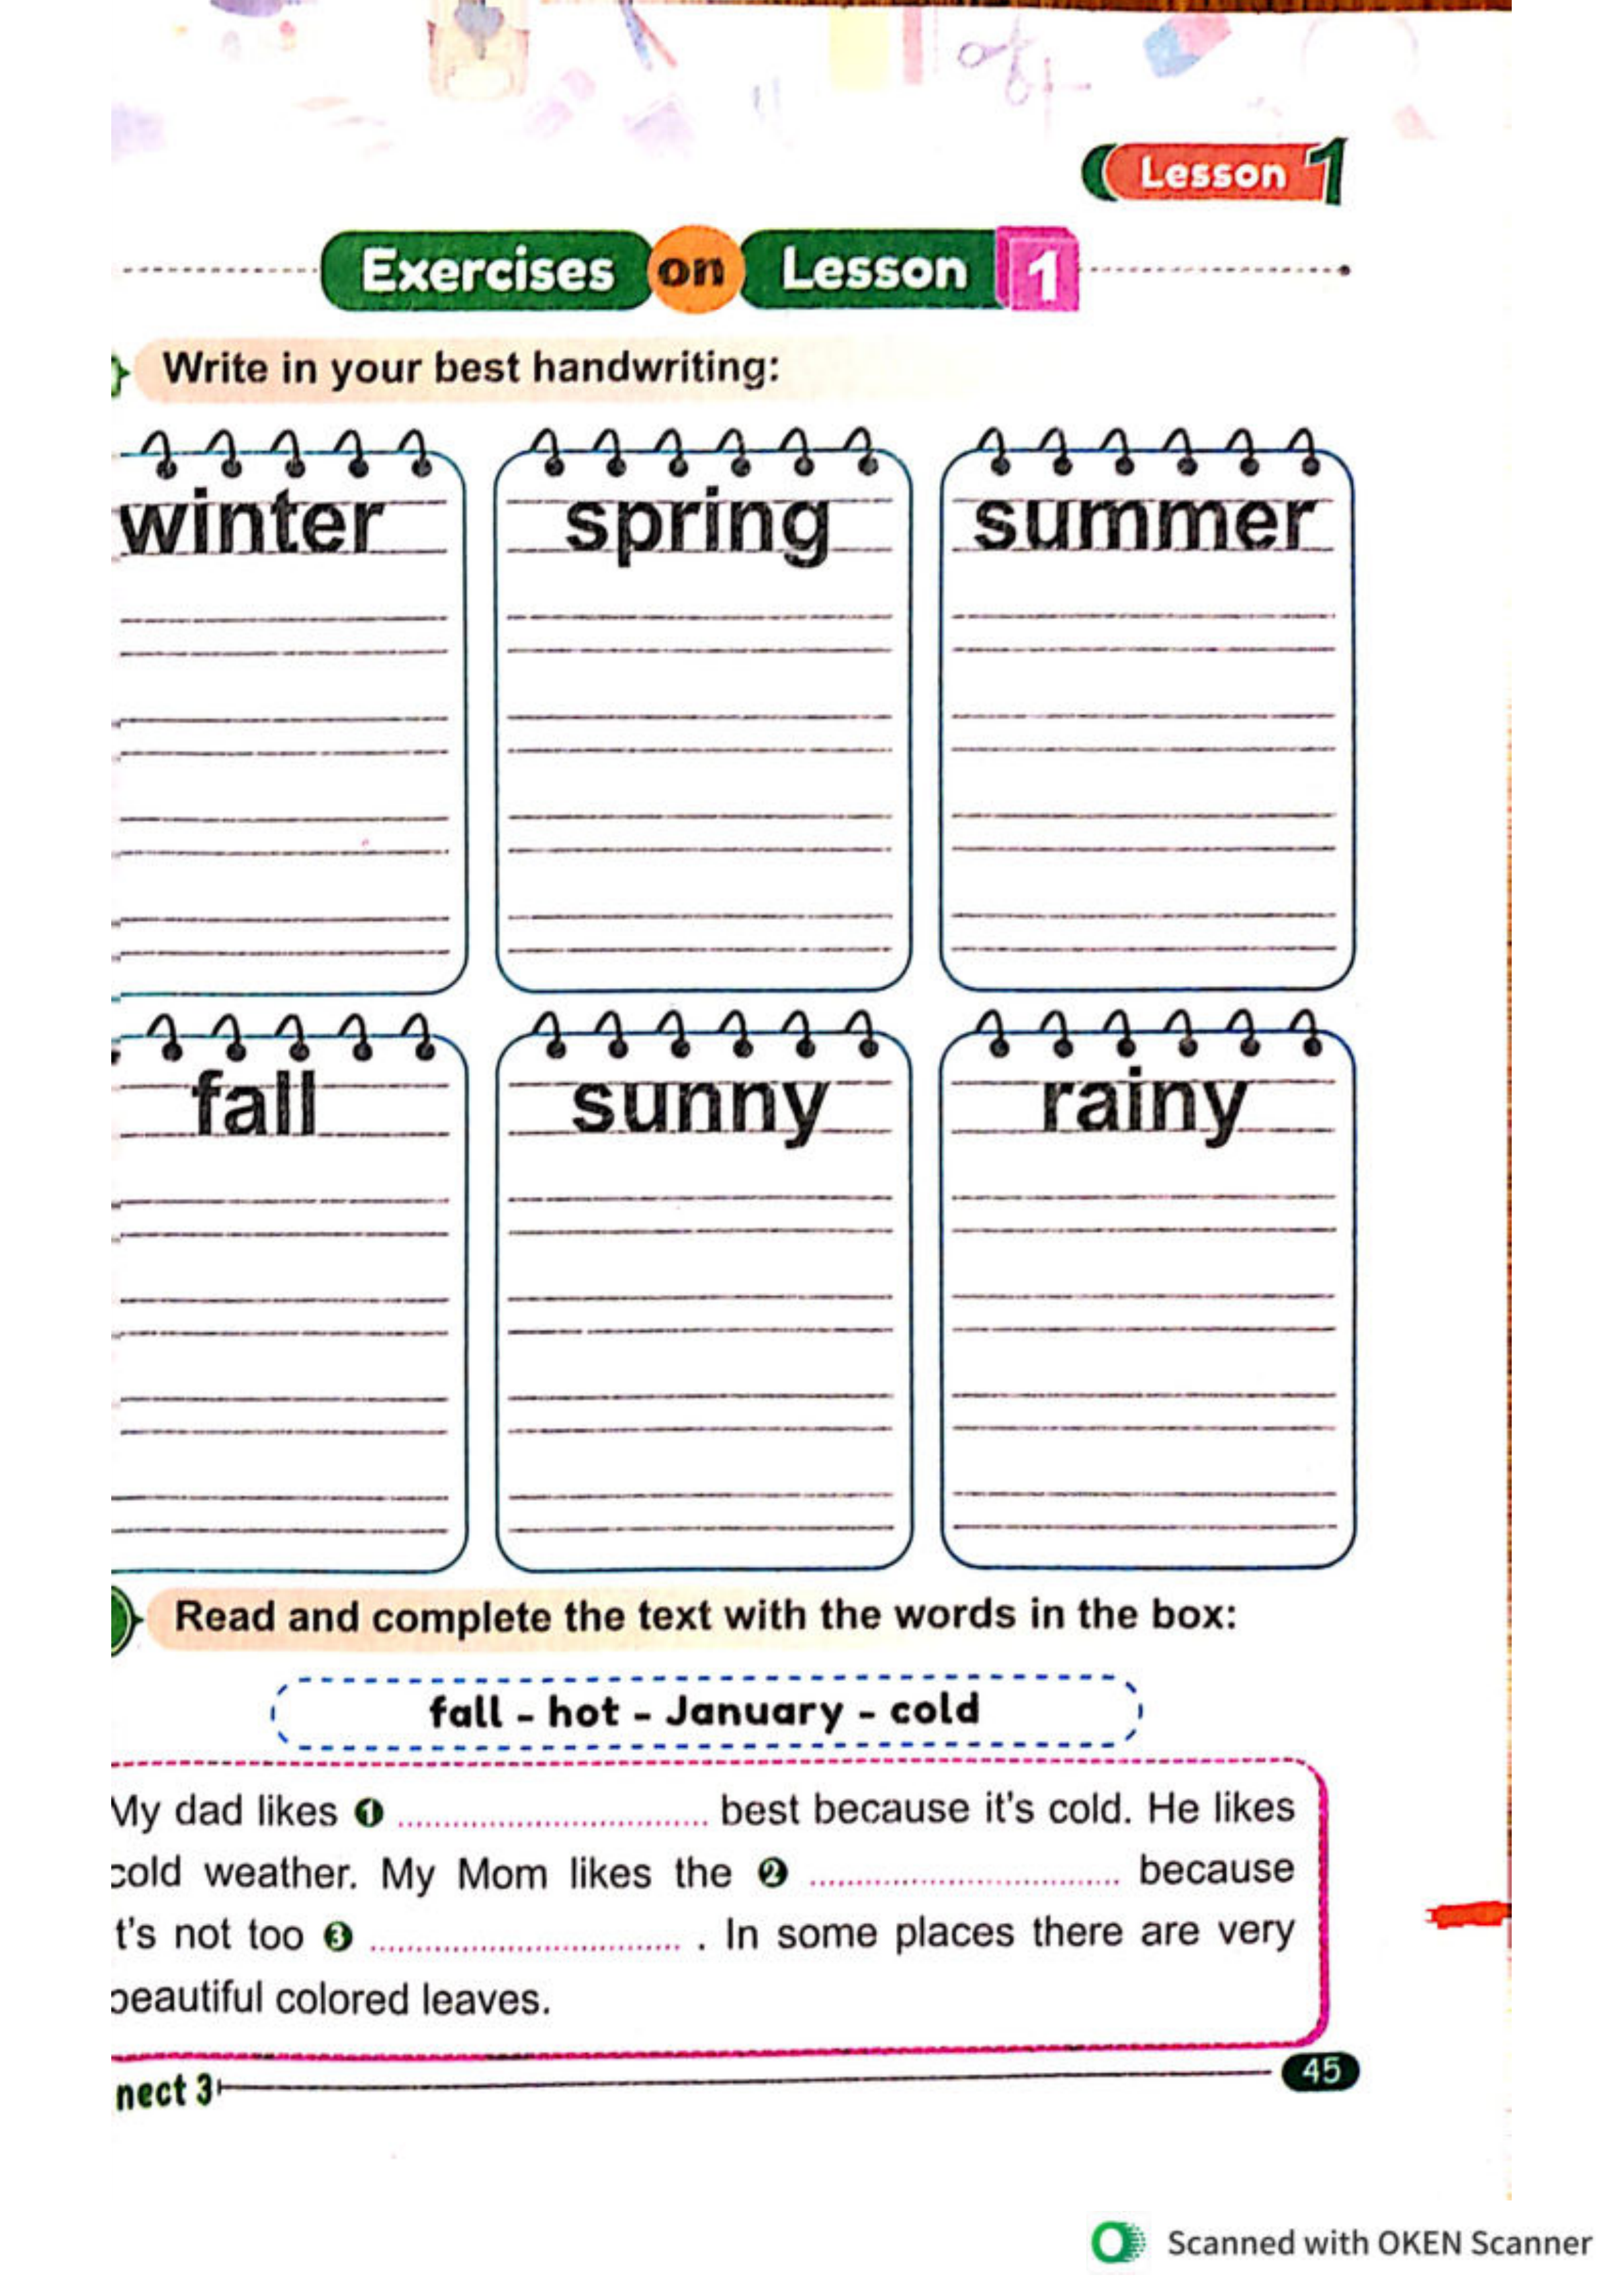 Lesson 1
Exercises on Lesson 1
Write in your best handwriting:
winter spring summer
fall sunny rainy
Read and complete the text with the words in the box:
fall - hot - January - cold
My dad likes ❶ .............................. best because it's cold. He likes
cold weather. My Mom likes the ❷ .............................. because
t's not too ❸ .............................. . In some places there are very
beautiful colored leaves.
nect 3
45
Scanned with OKEN Scanner